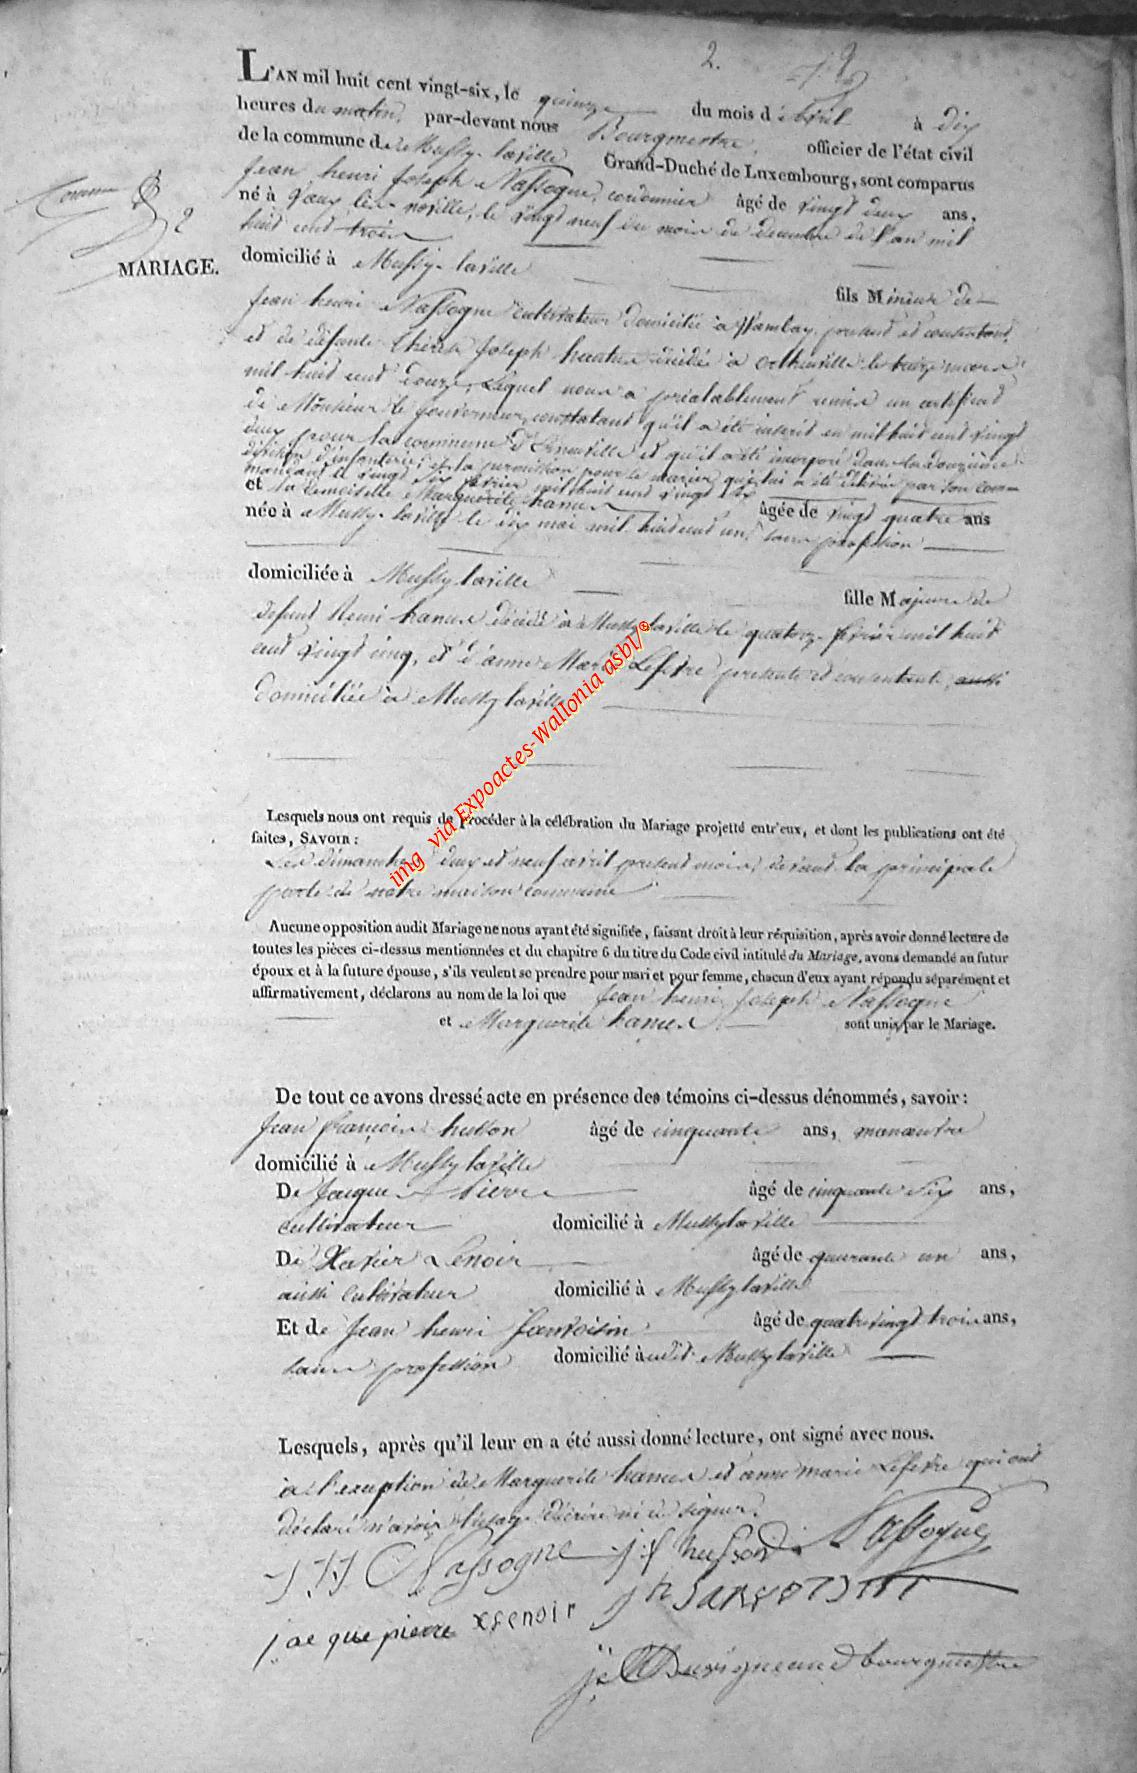 2.
L'AN mil huit cent vingt-six, le quinze du mois d'avril à dix
heures du matin, par-devant nous Bourgmestre, officier de l'état civil
de la commune de Mussy-laville Grand-Duché de Luxembourg, sont comparus
Jean henri Joseph Nassogne, cordonnier âgé de vingt deux ans,
né à Vaux lez noville, le vingt neuf du mois de decembre de l'an mil
huit cent trois
MARIAGE.
domicilié à Mussy-laville
fils Mineur de
Jean henri Nassogne cultivateur domicilié à present et consentant,
et de défunte thérèse Joseph décédée à le treize mars
mil huit cent douze, Lequel nous a préalablement remis un certificat
de Monsieur le gouverneur, constatant qu'il a été inscrit en mil huit cent vingt
deux pour la commune d' et qu'il a été incorporé dans la douzième
division d'infanterie; et la permission pour se marier qui lui a été délivrée par son com-
mandant le vingt six février mil huit cent vingt six
et la demoiselle Marguerite hanus âgée de vingt quatre ans
née à Mussy-laville le dix mai mil huit cent un, sans profession
domiciliée à Mussy laville
fille Majeure de
defunt Remi hanus décédé à Mussy laville le quatorze février mil huit
cent vingt cinq, et d'anne Marie Lefevre presente et consentante, aussi
domiciliée à Mussy laville
Lesquels nous ont requis de procéder à la célébration du Mariage projetté entr'eux, et dont les publications ont été
faites, SAVOIR :
Les dimanches deux et neuf avril present mois, devant la principale
porte de notre maison commune
Aucune opposition audit Mariage ne nous ayant été signifiée, faisant droit à leur réquisition, après avoir donné lecture de
toutes les pièces ci-dessus mentionnées et du chapitre 6 du titre du Code civil intitulé du Mariage, avons demandé au futur
époux et à la future épouse, s'ils veulent se prendre pour mari et pour femme, chacun d'eux ayant répondu séparément et
affirmativement, déclarons au nom de la loi que Jean henri Joseph Nassogne
et Marguerite hanus sont unis par le Mariage.
De tout ce avons dressé acte en présence des témoins ci-dessus dénommés, savoir :
Jean françois husson âgé de cinquante ans, manœuvre
domicilié à Mussy laville
De Jacques Pierre âgé de cinquante six ans,
cultivateur domicilié à Mussy laville
De Xavier Lenoir âgé de quarante un ans,
aussi cultivateur domicilié à Mussy laville
Et de Jean henri âgé de quatre vingt trois ans,
sans profession domicilié audit Mussy laville
Lesquels, après qu'il leur en a été aussi donné lecture, ont signé avec nous.
à l'exeption de Marguerite hanus et anne marie Lefevre qui ont
déclaré n'avoir l'usage d'écrire ni de signer.
Nassogne j:f husson Nassogne
jacque pierre X Lenoir
Duvigneaud bourgmestre
img via Expoactes-Wallonia asbl/®